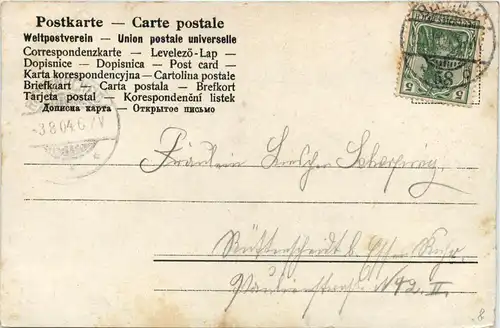 Postkarte — Carte postale
Weltpostverein — Union postale universelle
Correspondenzkarte — Levelező-Lap —
Dopisnice — Dopisnica — Post card —
Karta korespondencyjna — Cartolina postale
Briefkaart — Carta postala — Brefkort
Tarjeta postal — Korespondenční listek
Дописна карта — Открытое письмо
3.8.04.6-7V
5 5
Fräulein
Rüttenscheidt b. Essen Ruhr
Paulinenstraße N42. II.
8